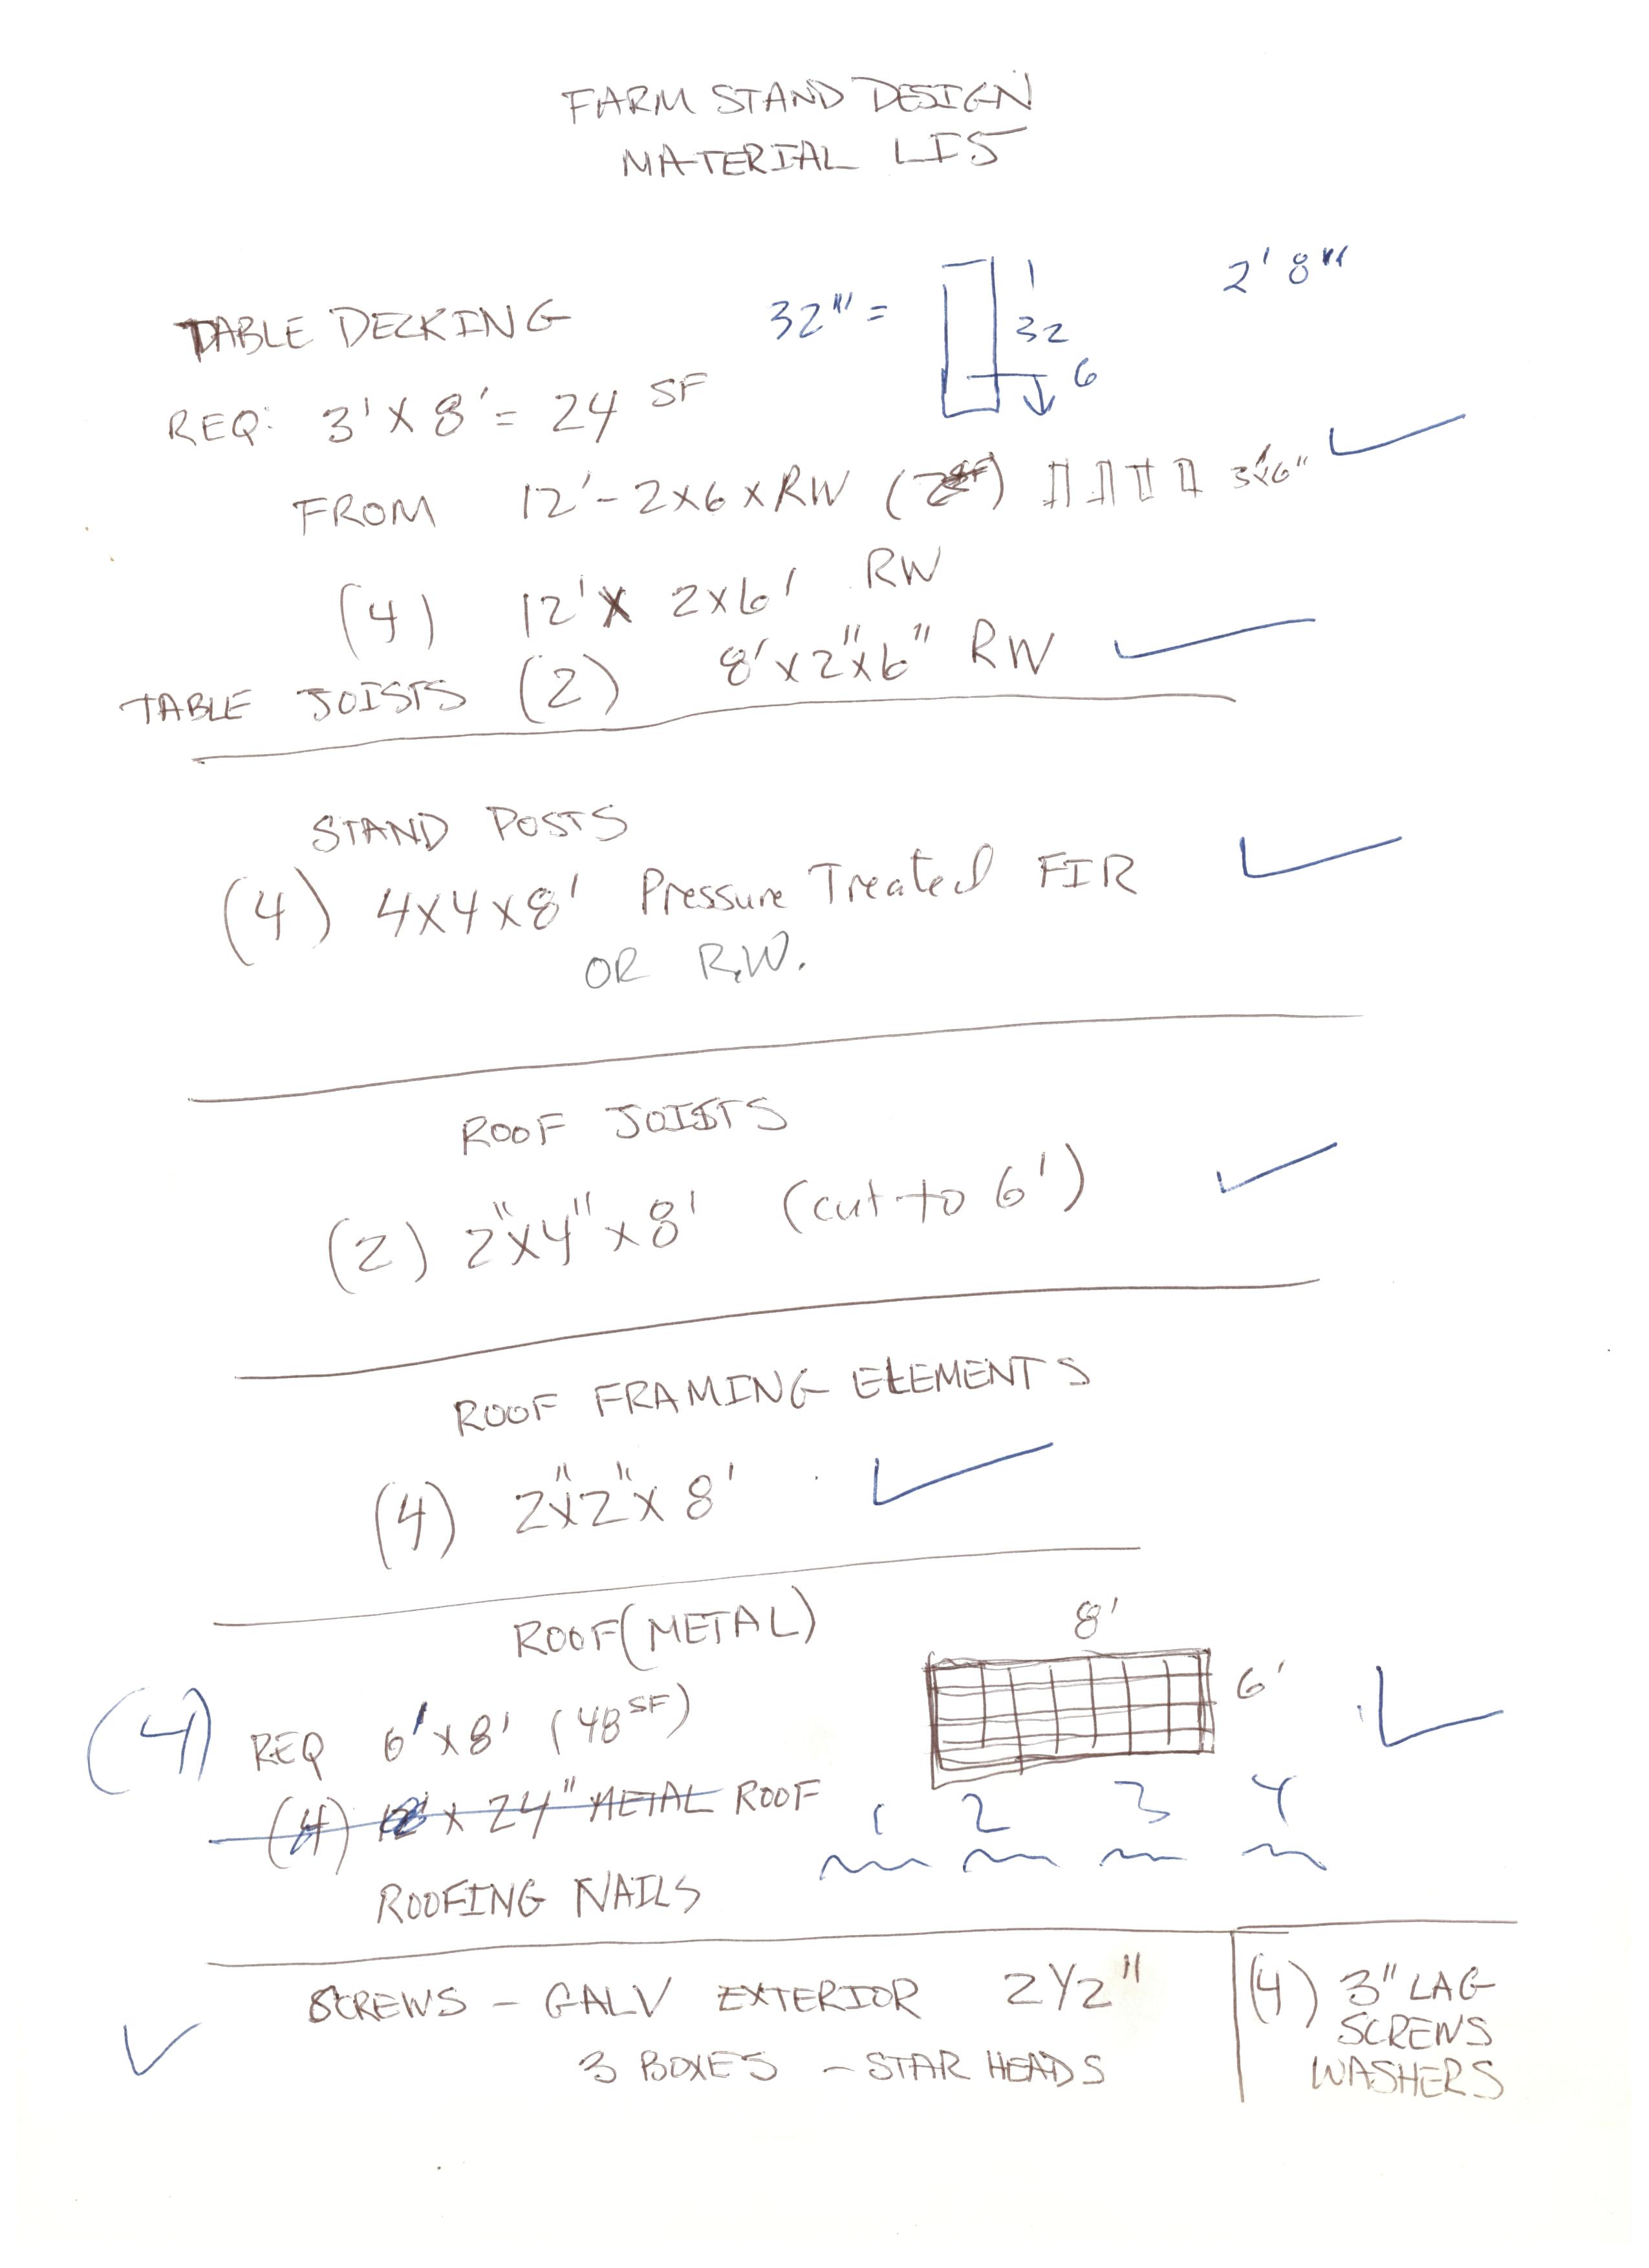 FARM STAND DESIGN
MATERIAL LIS
TABLE DECKING
32"' =
1
32
6
2' 8"'
REQ: 3' X 8' = 24 SF
FROM 12' - 2x6 x RW 3'x6"
(4) 12' X 2x6' RW
TABLE JOISTS (2) 8' x 2" x 6" RW
STAND POSTS
(4) 4x4x8' Pressure Treated FIR
OR R.W.
ROOF JOISTS
(2) 2"x4"x8' (cut to 6')
ROOF FRAMING ELEMENTS
(4) 2"x2"x 8'
ROOF (METAL)
8'
6'
(4) REQ 6' x 8' (48 SF)
(4) x 24" METAL ROOF
1 2 3 4
ROOFING NAILS
SCREWS - GALV EXTERIOR 2 1/2"
3 BOXES - STAR HEADS
(4) 3" LAG
SCREWS
WASHERS